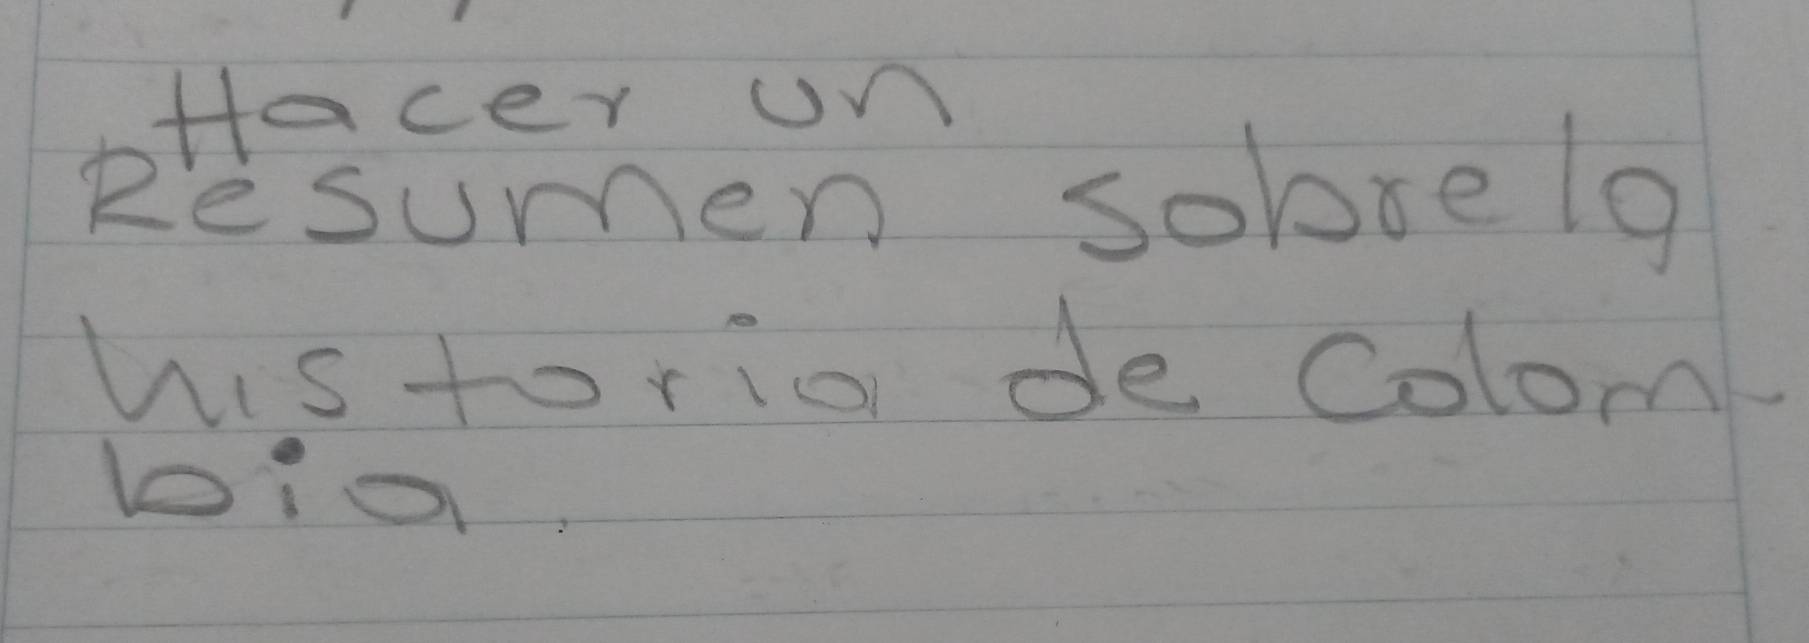 Hacer un
Resumen sobre la
historia de Colom-
bia.